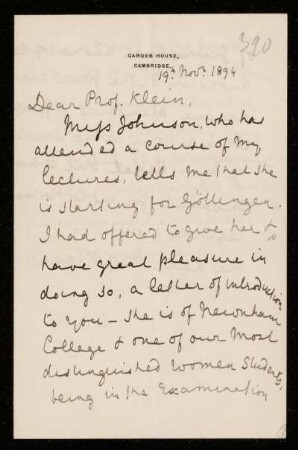 GARDEN HOUSE,
CAMBRIDGE.
390
19th Novr. 1894
Dear Prof. Klein,
Miss Johnson, who has
attended a course of my
lectures, tells me that she
is starting for Göttingen.
I had offered to give her &
have great pleasure in
doing so, a letter of introduction
to you – she is of Newnham
College & one of our most
distinguished women students,
being in the Examination